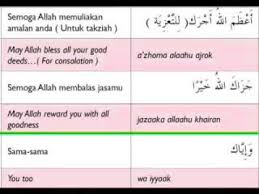 Semoga Allah memuliakan
amalan anda ( Untuk takziah )
أَعْظَمَ اللهُ أَجْرَك ( لِلتَّعْزِيَة )
May Allah bless all your good
deeds...( For consolation )
a'zhoma alaahu ajrok
Semoga Allah membalas jasamu
جَزَاكَ اللهُ خَيْرًا
May Allah reward you with all
goodness
jazaaka allaahu khairan
Sama-sama
وَإِيَّاك
You too
wa iyyaak